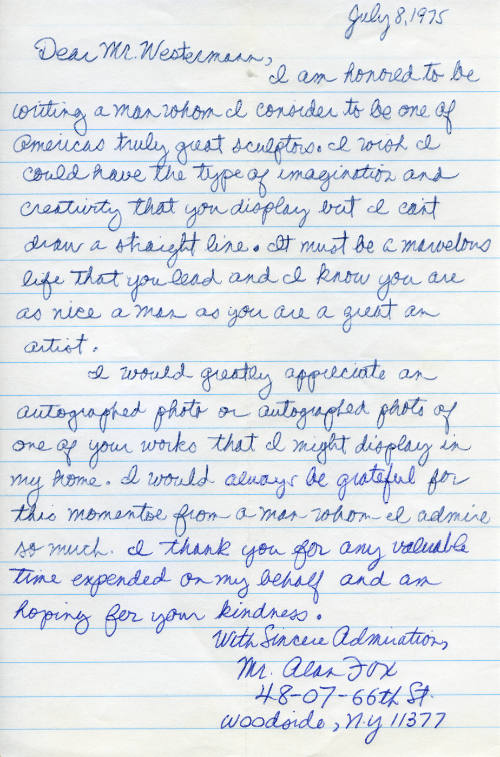 July 8, 1975
Dear Mr. Westermann,
I am honored to be
writing a man whom I consider to be one of
Americas truly great sculptors. I wish I
could have the type of imagination and
creativity that you display but I cant
draw a straight line. It must be a marvelous
life that you lead and I know you are
as nice a man as you are a great an
artist.
I would greatly appreciate an
autographed photo or autographed photo of
one of your works that I might display in
my home. I would always be grateful for
this momentoe from a man whom I admire
so much. I thank you for any valuable
time expended on my behalf and am
hoping for your kindness.
With Sincere Admiration,
Mr. Alan Fox
48-07-66th St.
Woodside, N.Y 11377